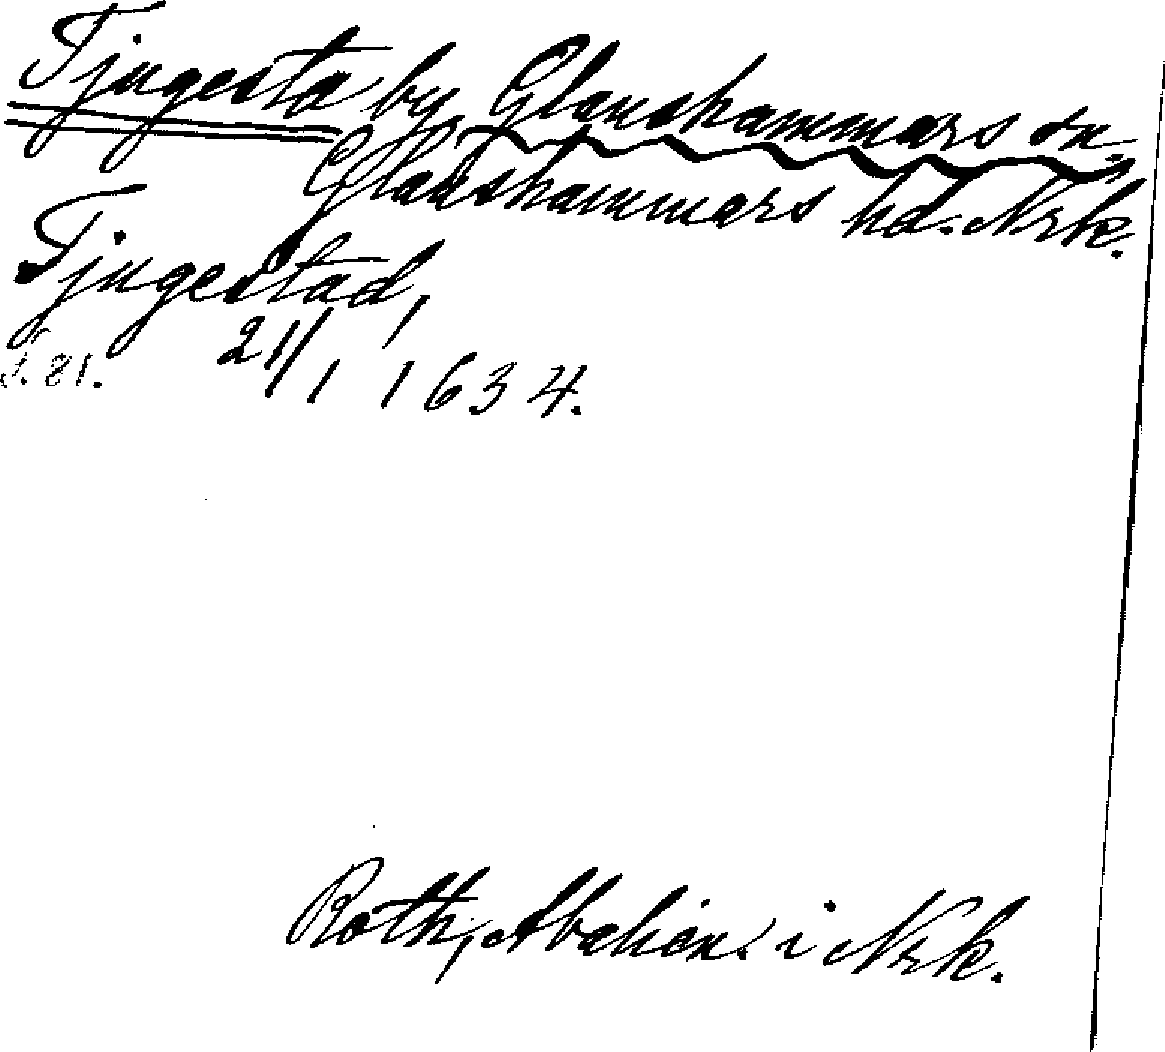 Tjugesta by Glanshammars sn.
Glanshammars hd. Nrk.
Tjugestad,
21/1 1634.
S. 81.
Roth, Abalien. i Nrk.